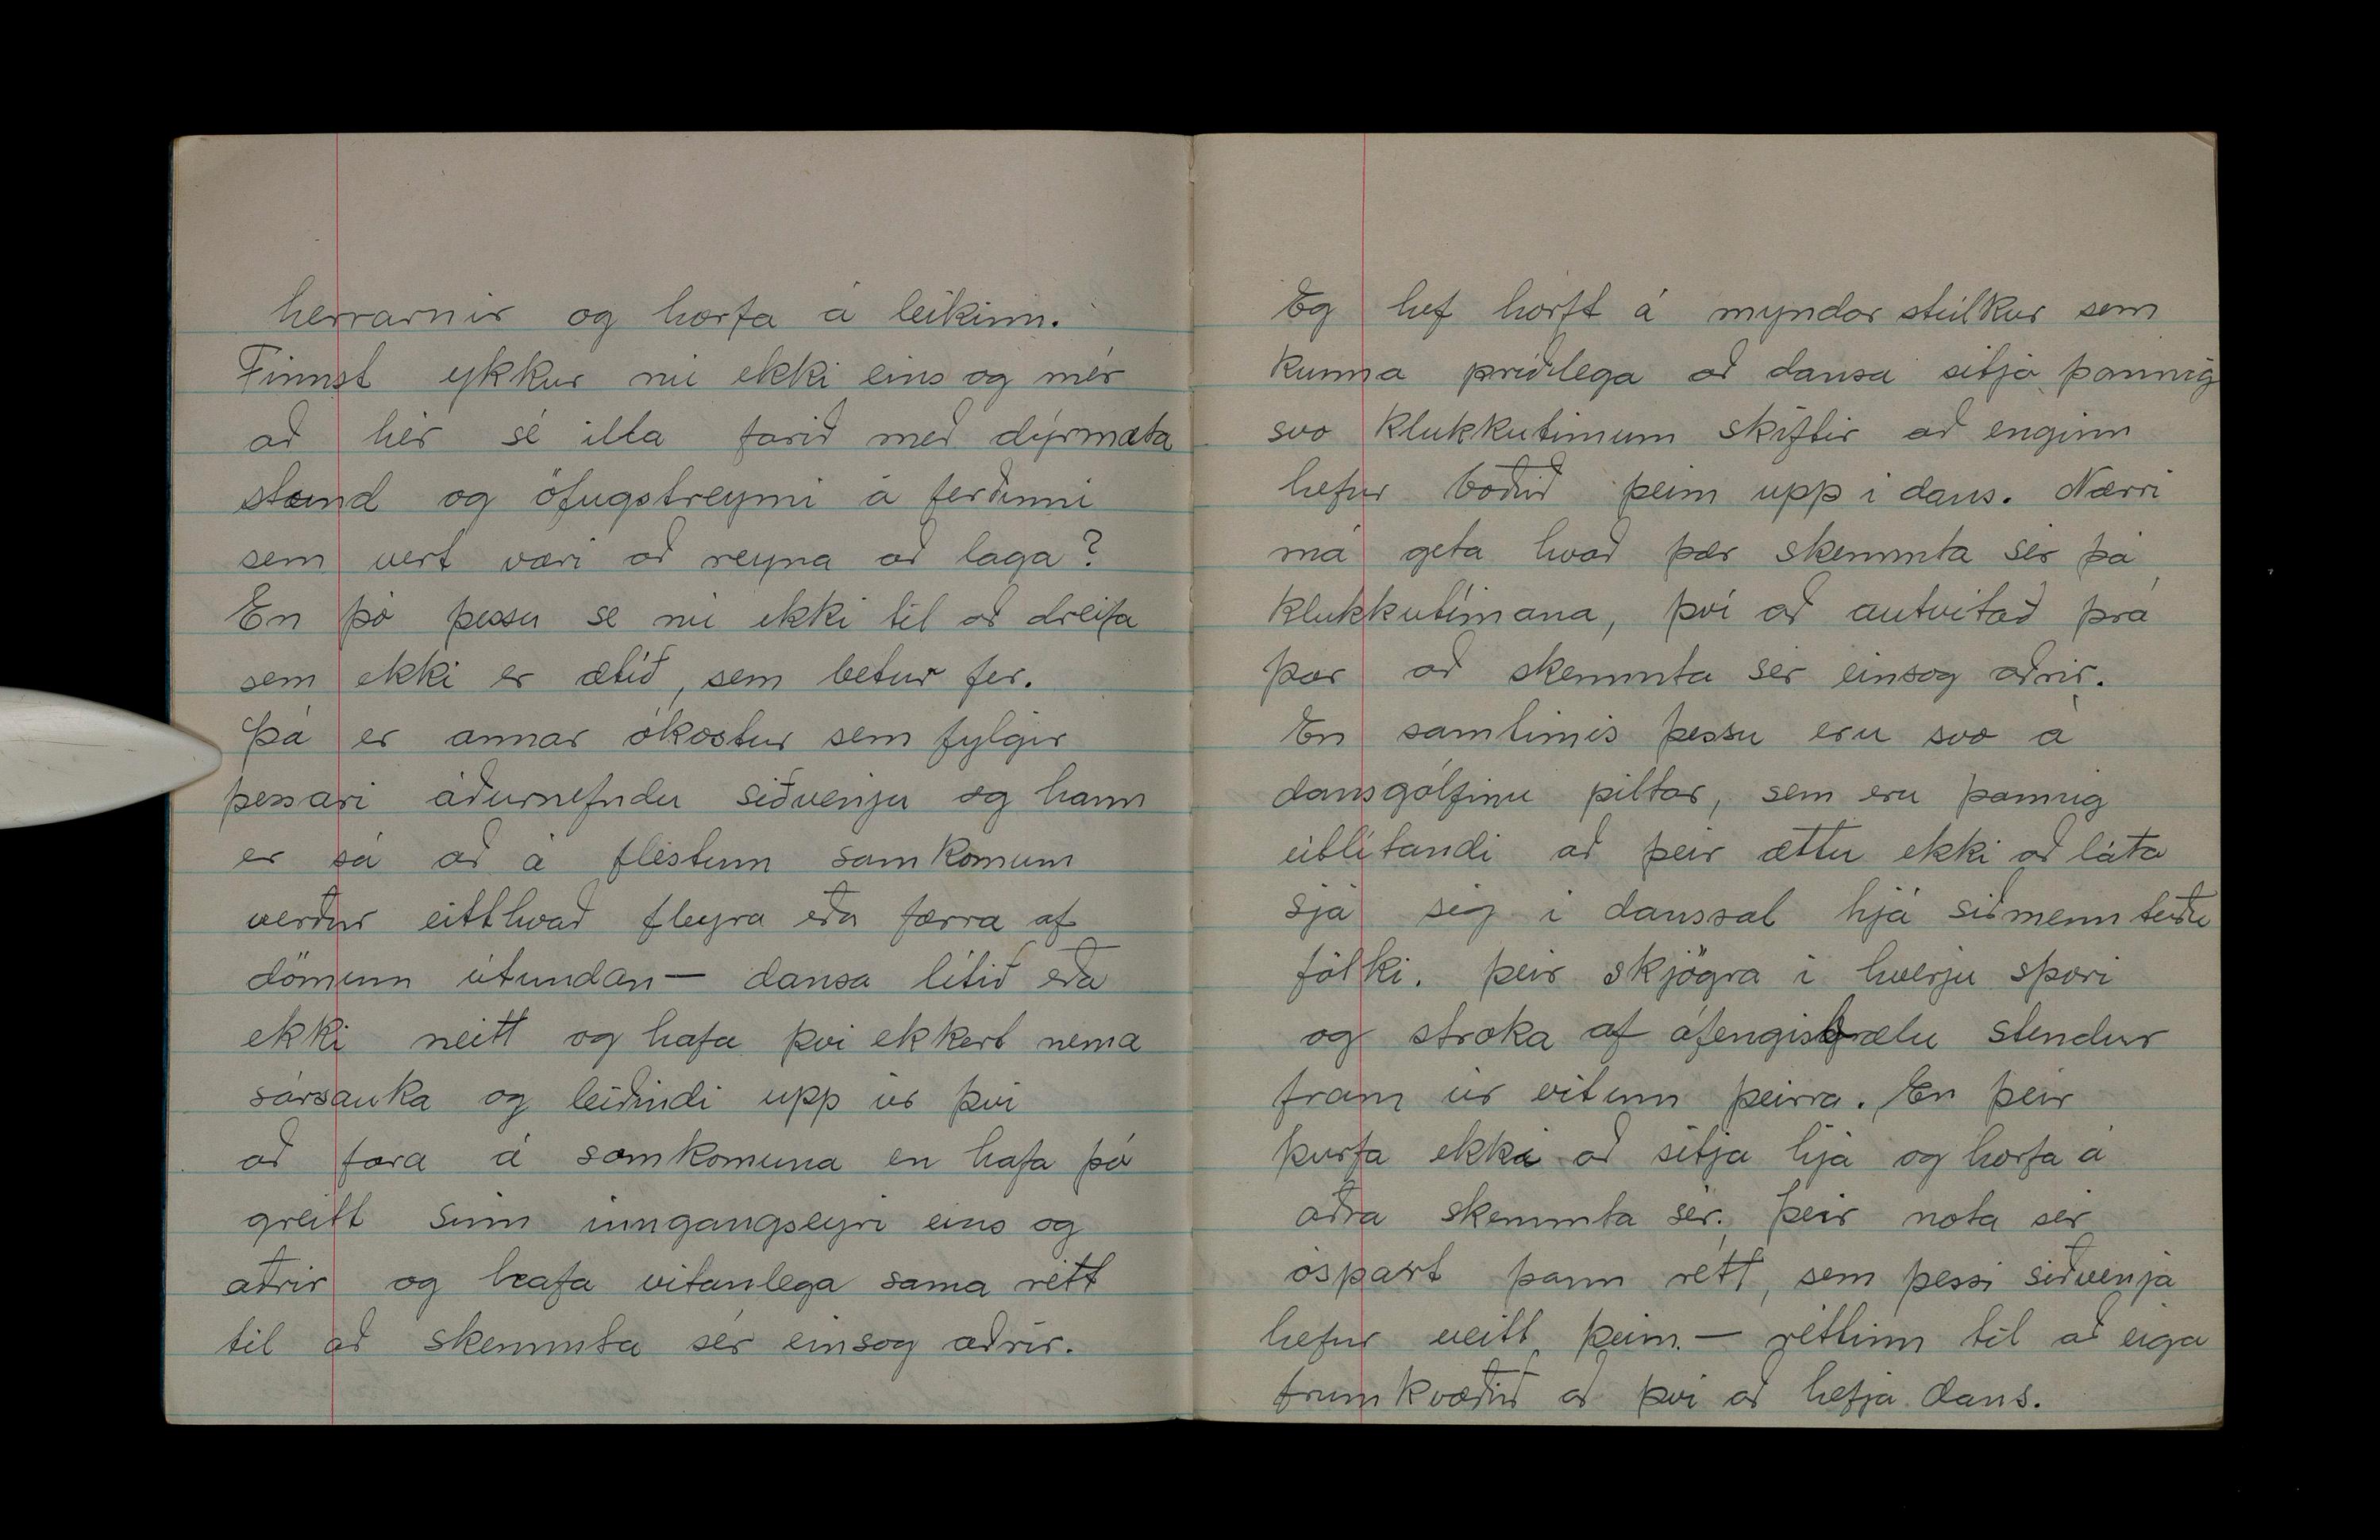 herrarnir og horfa á leikinn.
Finnst ykkur nú ekki eins og mér
að hér sé illa farið með dýrmæta
stund og öfugstreymi á ferðinni
sem vert væri að reyna að laga?
En þó þessu se nú ekki til að dreifa
sem ekki er ætið, sem betur fer.
Þá er annar ókostur sem fylgir
þessari áðurnefndu siðvenju og hann
er sá að á flestum samkomum
verður eitthvað fleyra eða færra af
dömunn útundan — dansa lítið eða
ekki neitt og hafa því ekkert nema
sársauka og leiðindi upp úr því
að fara á samkomuna en hafa þó
greitt sinn inngangseyri eins og
aðrir og hafa vitanlega sama rétt
til að skemmta sér einsog aðrir.
Eg hef horft á myndar stúlkur sem
kunna príðilega að dansa sitja þannig
svo klukkutímum skiftir að enginn
hefur boðið þeim upp í dans. Nærri
má geta hvað þær skemmta sér þá
klukkutímana, því að autvitað þrá
þær að skemmta sér einsog aðrir.
En samtímis þessu eru svo á
dansgólfinu piltar, sem eru þannig
útlítandi að þeir ættu ekki að láta
sjá sig í danssal hjá siðmenntuðu
fólki. Þeir skjögra í hverju spori
og stroka af áfengisbrælu stendur
fram úr vitunn þeirra. En þeir
þurfa ekki að sitja hjá og horfa á
aðra skemmta sér. Þeir nota sér
óspart þann rétt, sem þessi siðvenja
hefur veitt þeim. — réttinn til að eiga
frumkvæðið að því að hefja dans.